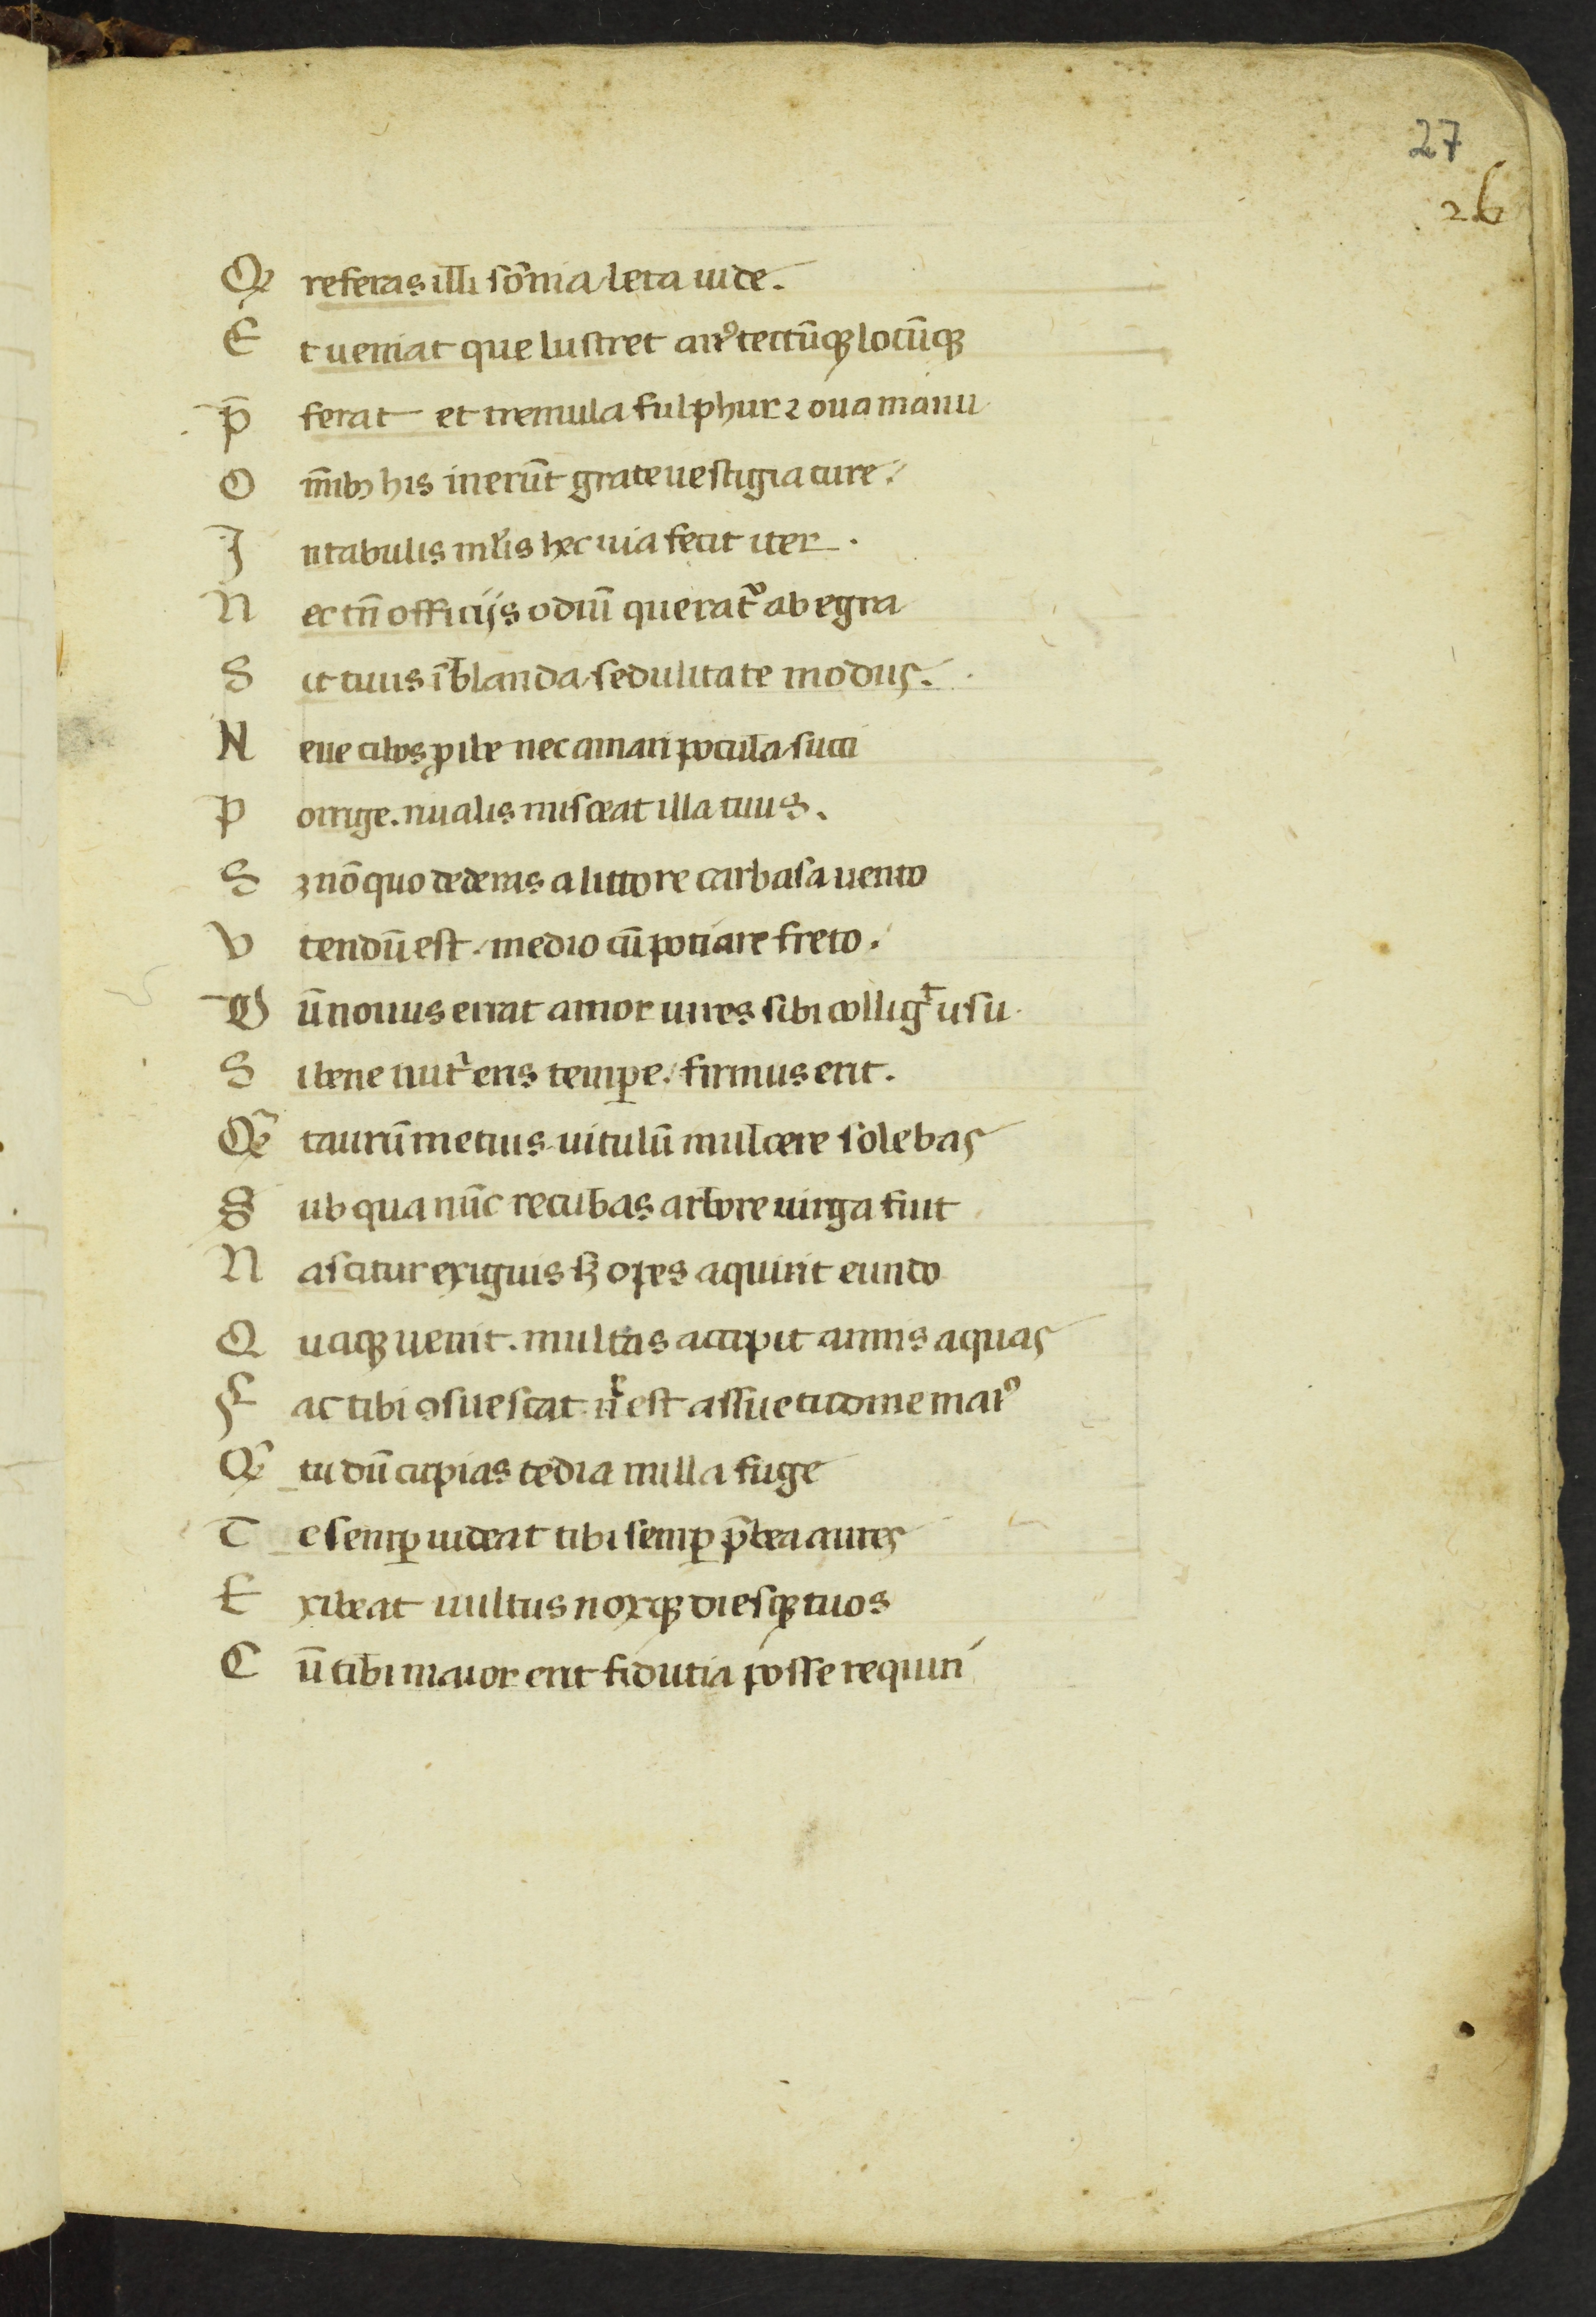 27
26
Q referas illi sōnia leta uide.
E t ueniat que lustret an⁹ tectūqꝫ locūqꝫ
p̄ ferat et tremula sulphur ⁊ oua manu
O m̄ibꝫ his inerūt grate uestigia cure.
I n tabulis ml̓is hec uia fecit iter.
N ec tn̄ officijs odiū querat̉ ab egra
S it tuus ī blanda sedulitate modus.
N eue cibos ꝓibe nec amari pocula succi
P orrige. riualis misceat illa tuus.
S ꝫ nō quo dederas a littore carbasa uento
V tendū est. medio cū potiare freto.
D ū nouus errat amor uires sibi collig̉t usu.
S i bene nut̉eris tempꝑe. firmus erit.
Qē taurū metuis uitulū mulcere solebas
S ub qua nūc recubas arbore uirga fuit
N ascitur exiguis sꝫ opes aquirit eundo
Q uaqꝫ uenit. multas accipit amnis aquas
F ac tibi ꝯsuescat nͨ est assuetudine mai⁹
Qē tu dū capias tedia nulla fuge
T e semꝑ uideat tibi semꝑ p̄bea aures
E xibeat uultus noxqꝫ diesqꝫ tuos
C ū tibi maior erit fidutia posse requiri